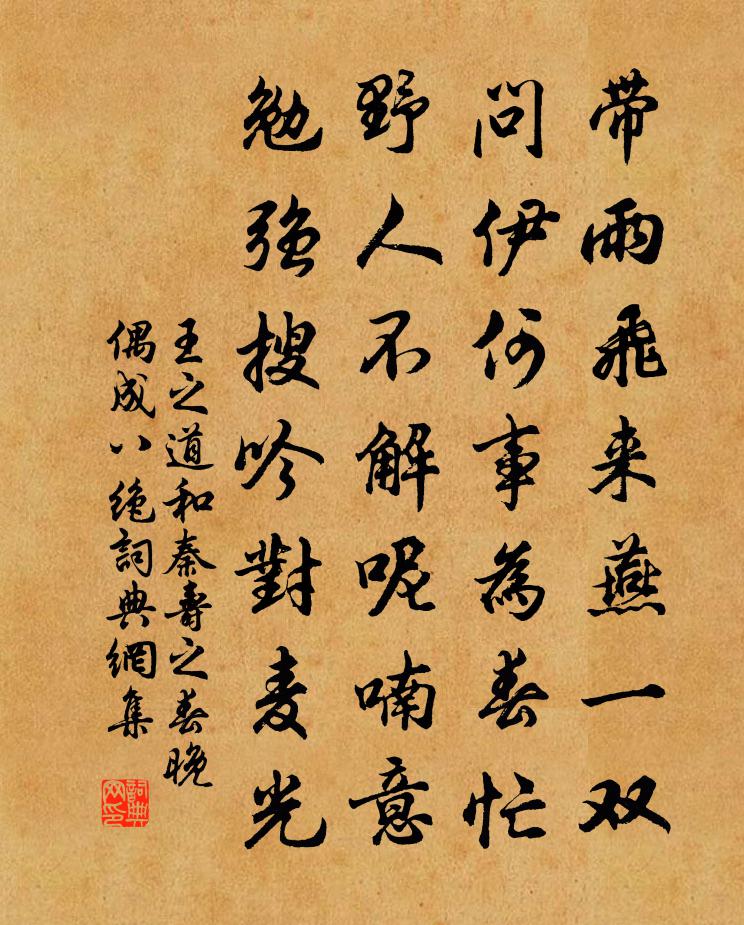 带雨飛来燕一双
問伊何事為春忙
野人不解呢喃意
勉强搜吟對麦光
王之道和秦壽之春晚
偶成八绝詞典網集
詞典
网印